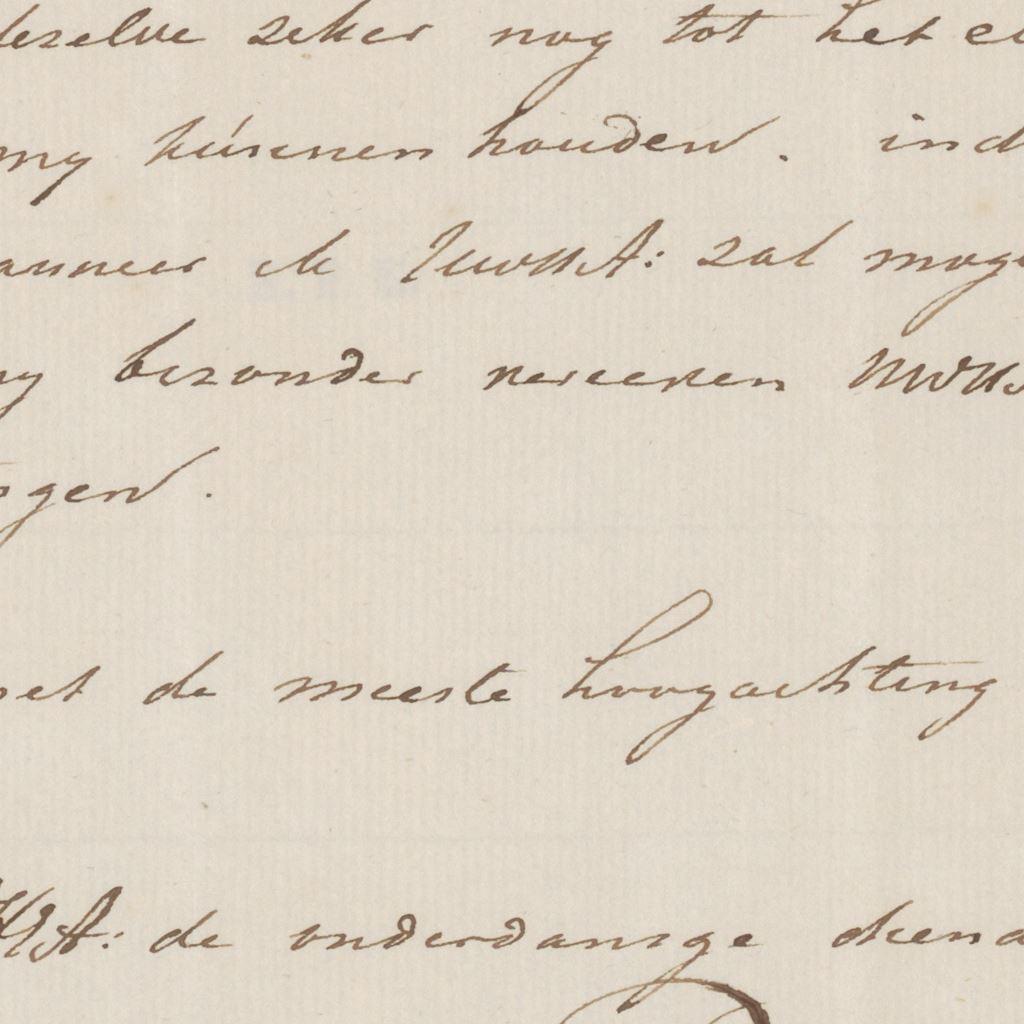 dezelve zeker nog tot het
my kúnnen houden. ind
anneer ik UwHA: zal moge
bezonder vereeren
gen.
et de meeste hoogachting
de onderdanige diena